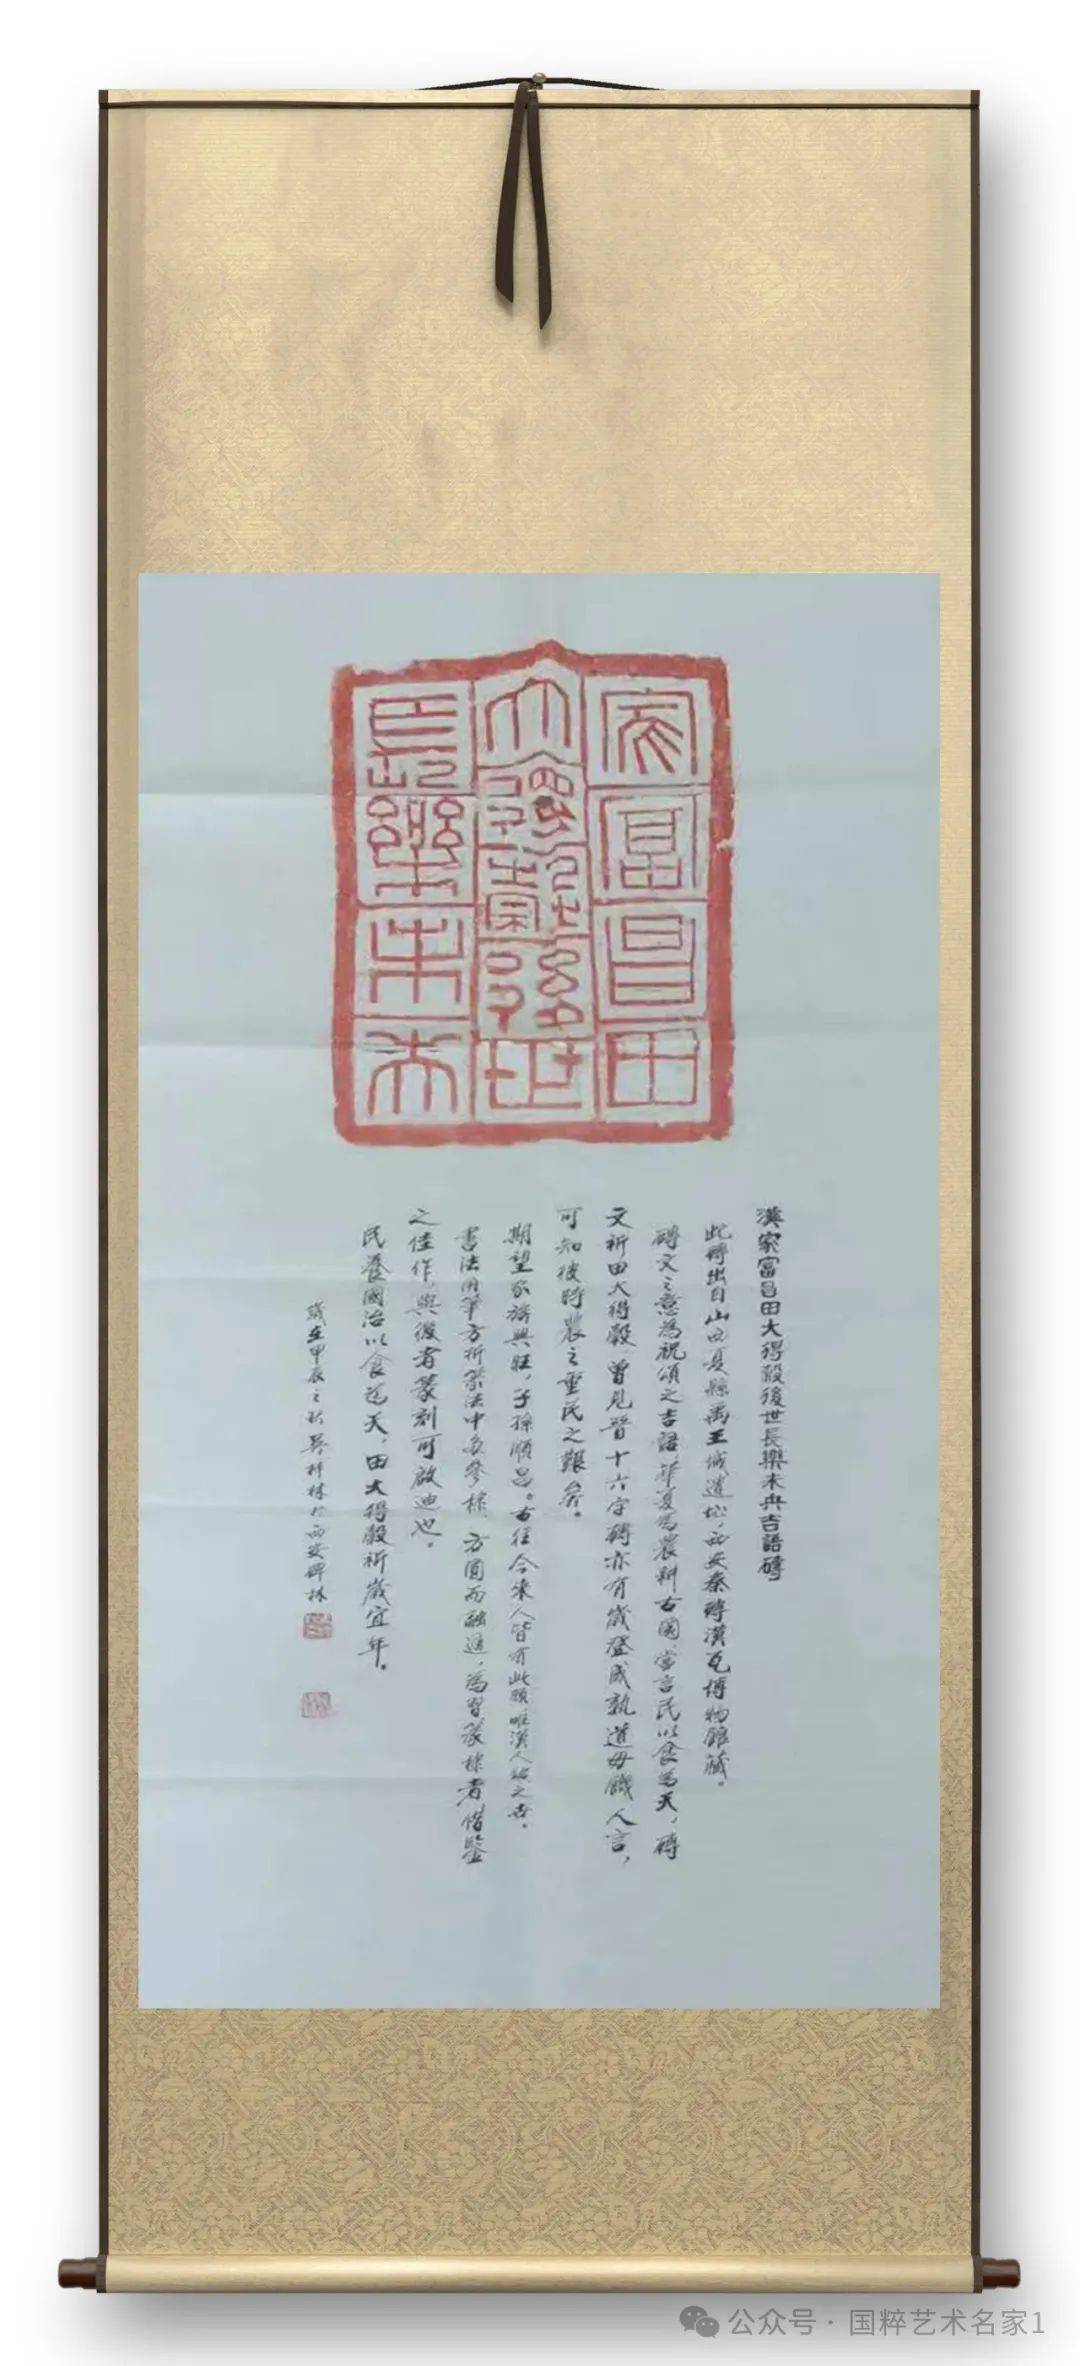 家富昌田
大得穀後世
長樂未央
漢家富昌田大得穀後世長樂未央吉語磚
此磚出自山西夏縣禹王城遺址，西安秦磚漢瓦博物館藏。
磚文之意為祝頌之吉語，華夏為農耕古國，常言民以食為天，磚
文祈田大得穀，曾見晉十六字磚亦有歲登成熟道毋飢人言，
可知彼時農之重民之艱矣。
期望家族興旺，子孫順昌。古往今來人皆有此願唯漢人
書法用筆方折篆法中多參隸，方圓而融通，為習篆隸者借鑒
之佳作，與後者篆刻可啟迪也。
民養國治以食為天，田大得穀祈歲宜年。
歲在甲辰之秋 林於西安碑林
公众号 · 国粹艺术名家1